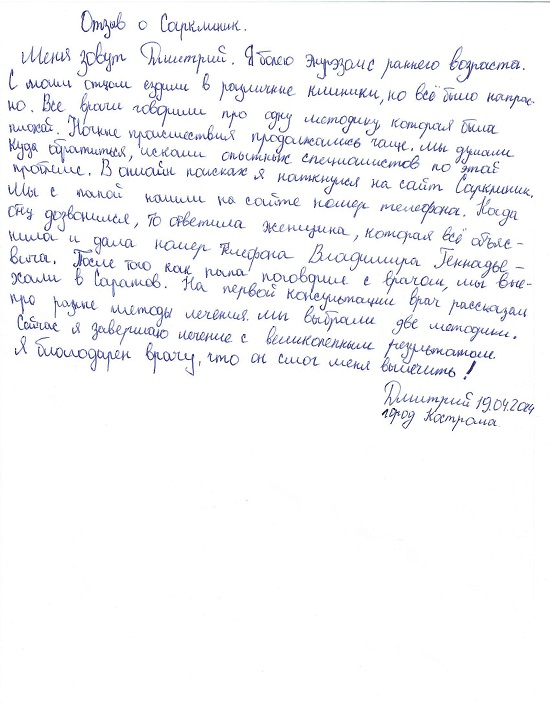 Отзыв о Сарклиник.
Меня зовут Дмитрий. Я болею энурезом с раннего возраста.
С моим отцом ездили в различные клиники, но всё было напрас-
но. Все врачи говорили про одну методику, которая была
плохой. Ночные происшествия продолжались чаще. Мы думали
куда обратиться, искали опытных специалистов по этой
проблеме. В онлайн поисках я наткнулся на сайт Сарклиник.
Мы с папой нашли на сайте номер телефона. Когда
отец дозвонился, то ответила женщина, которая всё объяс-
нила и дала номер телефона Владимира Геннадье-
вича. После того как папа поговорил с врачом, мы вые-
хали в Саратов. На первой консультации врач рассказал
про разные методы лечения. Мы выбрали две методики.
Сейчас я завершаю лечение с великолепным результатом.
Я благодарен врачу, что он смог меня вылечить!
Дмитрий 19.04.2024
город Кострома.